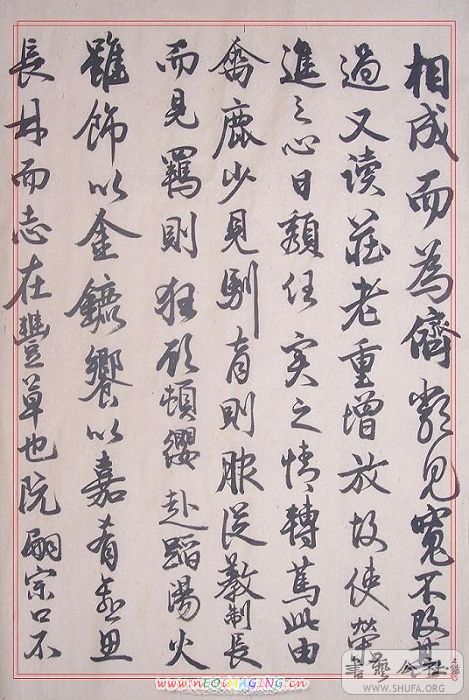 相成而為儕類見寬不攻其
過又读莊老重增放故使榮
進之心日頹任实之情轉篤此由
禽鹿少見馴育則服從教制長
而見羈則狂顾頓纓赴蹈湯火
雖飾以金鑣饗以嘉肴愈思
長林而志在豐草也阮嗣宗口不
書藝公社
WWW.SHUFA.ORG
www.nEOiMAGiNG.cn